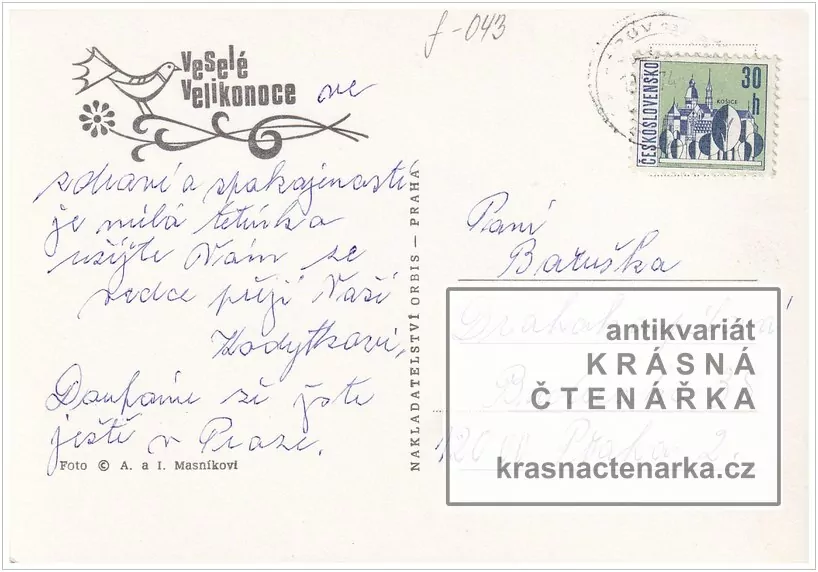 f-043
Veselé
Velikonoce ve
zdraví a spokojenosti
je milá tetinka
užijte Vám ze
srdce přejí Vaši
Doufáme že jste
ještě v Praze.
Foto © A. a I. Masníkovi
NAKLADATELSTVÍ ORBIS — PRAHA
ČESKOSLOVENSKO
30
h
KOŠICE
Paní
Baruška
120 00 Praha 2.
antikvariát
KRÁSNÁ
ČTENÁŘKA
krasnactenarka.cz